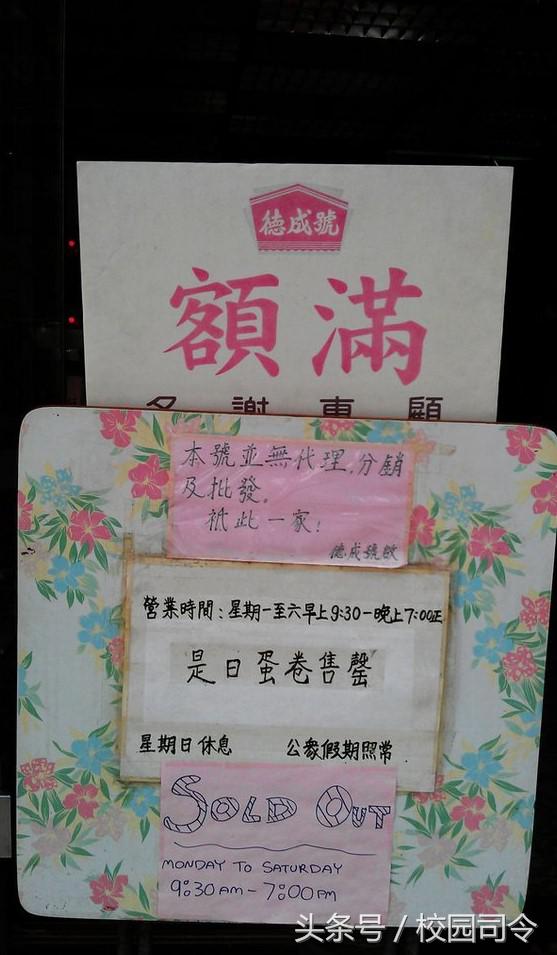 德成號
額滿
多謝惠顧
本號並無代理，分銷
及批發。
祇此一家！
德成號啟
營業時間：星期一至六早上9:30－晚上7:00正
是日蛋卷售罄
星期日休息 公衆假期照常
SOLD OUT
MONDAY TO SATURDAY
9:30AM - 7:00PM
头条号 / 校园司令